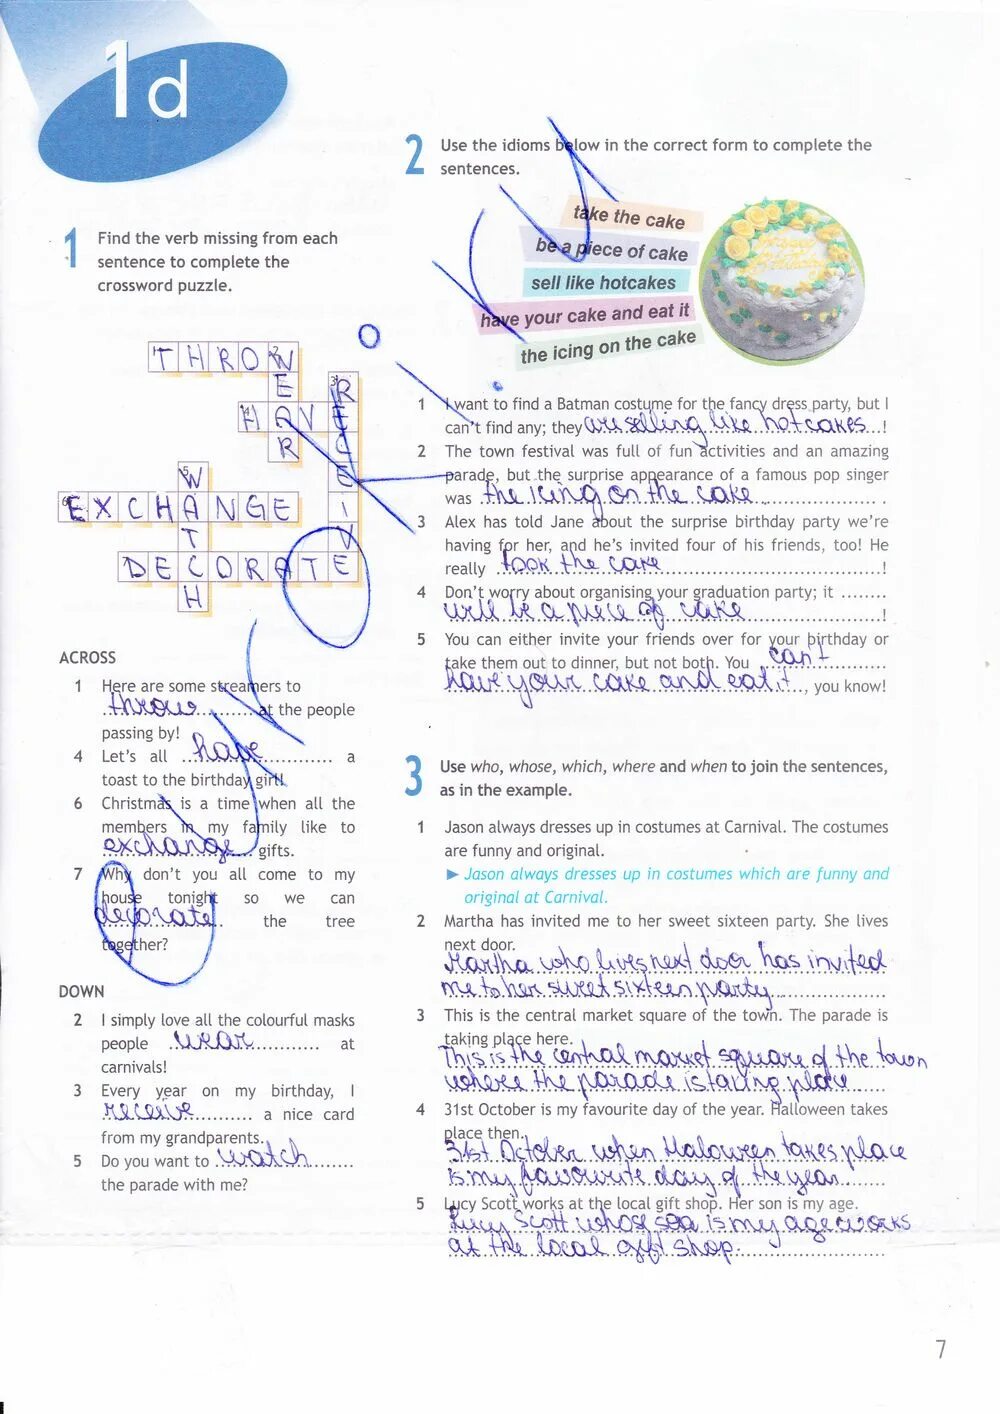 1d
1 Find the verb missing from each
sentence to complete the
crossword puzzle.
THROW
WEAR
RECEIVE
HAVE
WATCH
EXCHANGE
DECORATE
ACROSS
1 Here are some streamers to
throw at the people
passing by!
4 Let's all have a
toast to the birthday girl!
6 Christmas is a time when all the
members in my family like to
exchange gifts.
7 Why don't you all come to my
house tonight so we can
decorate the tree
together?
DOWN
2 I simply love all the colourful masks
people wear at
carnivals!
3 Every year on my birthday, I
receive a nice card
from my grandparents.
5 Do you want to watch
the parade with me?
2 Use the idioms below in the correct form to complete the
sentences.
take the cake
be a piece of cake
sell like hotcakes
have your cake and eat it
the icing on the cake
1 I want to find a Batman costume for the fancy dress party, but I
can't find any; they are selling like hotcakes !
2 The town festival was full of fun activities and an amazing
parade, but the surprise appearance of a famous pop singer
was the icing on the cake .
3 Alex has told Jane about the surprise birthday party we're
having for her, and he's invited four of his friends, too! He
really took the cake !
4 Don't worry about organising your graduation party; it ........
will be a piece of cake !
5 You can either invite your friends over for your birthday or
take them out to dinner, but not both. You can't
have your cake and eat it, you know!
3 Use who, whose, which, where and when to join the sentences,
as in the example.
1 Jason always dresses up in costumes at Carnival. The costumes
are funny and original.
► Jason always dresses up in costumes which are funny and
original at Carnival.
2 Martha has invited me to her sweet sixteen party. She lives
next door.
Martha who lives next door has invited
me to her sweet sixteen party
3 This is the central market square of the town. The parade is
taking place here.
This is the central market square of the town
where the parade is taking place
4 31st October is my favourite day of the year. Halloween takes
place then.
31st October when Haloween takes place
is my favourite day of the year
5 Lucy Scott works at the local gift shop. Her son is my age.
Lucy Scott whose is my age works
at the local gift shop.
7